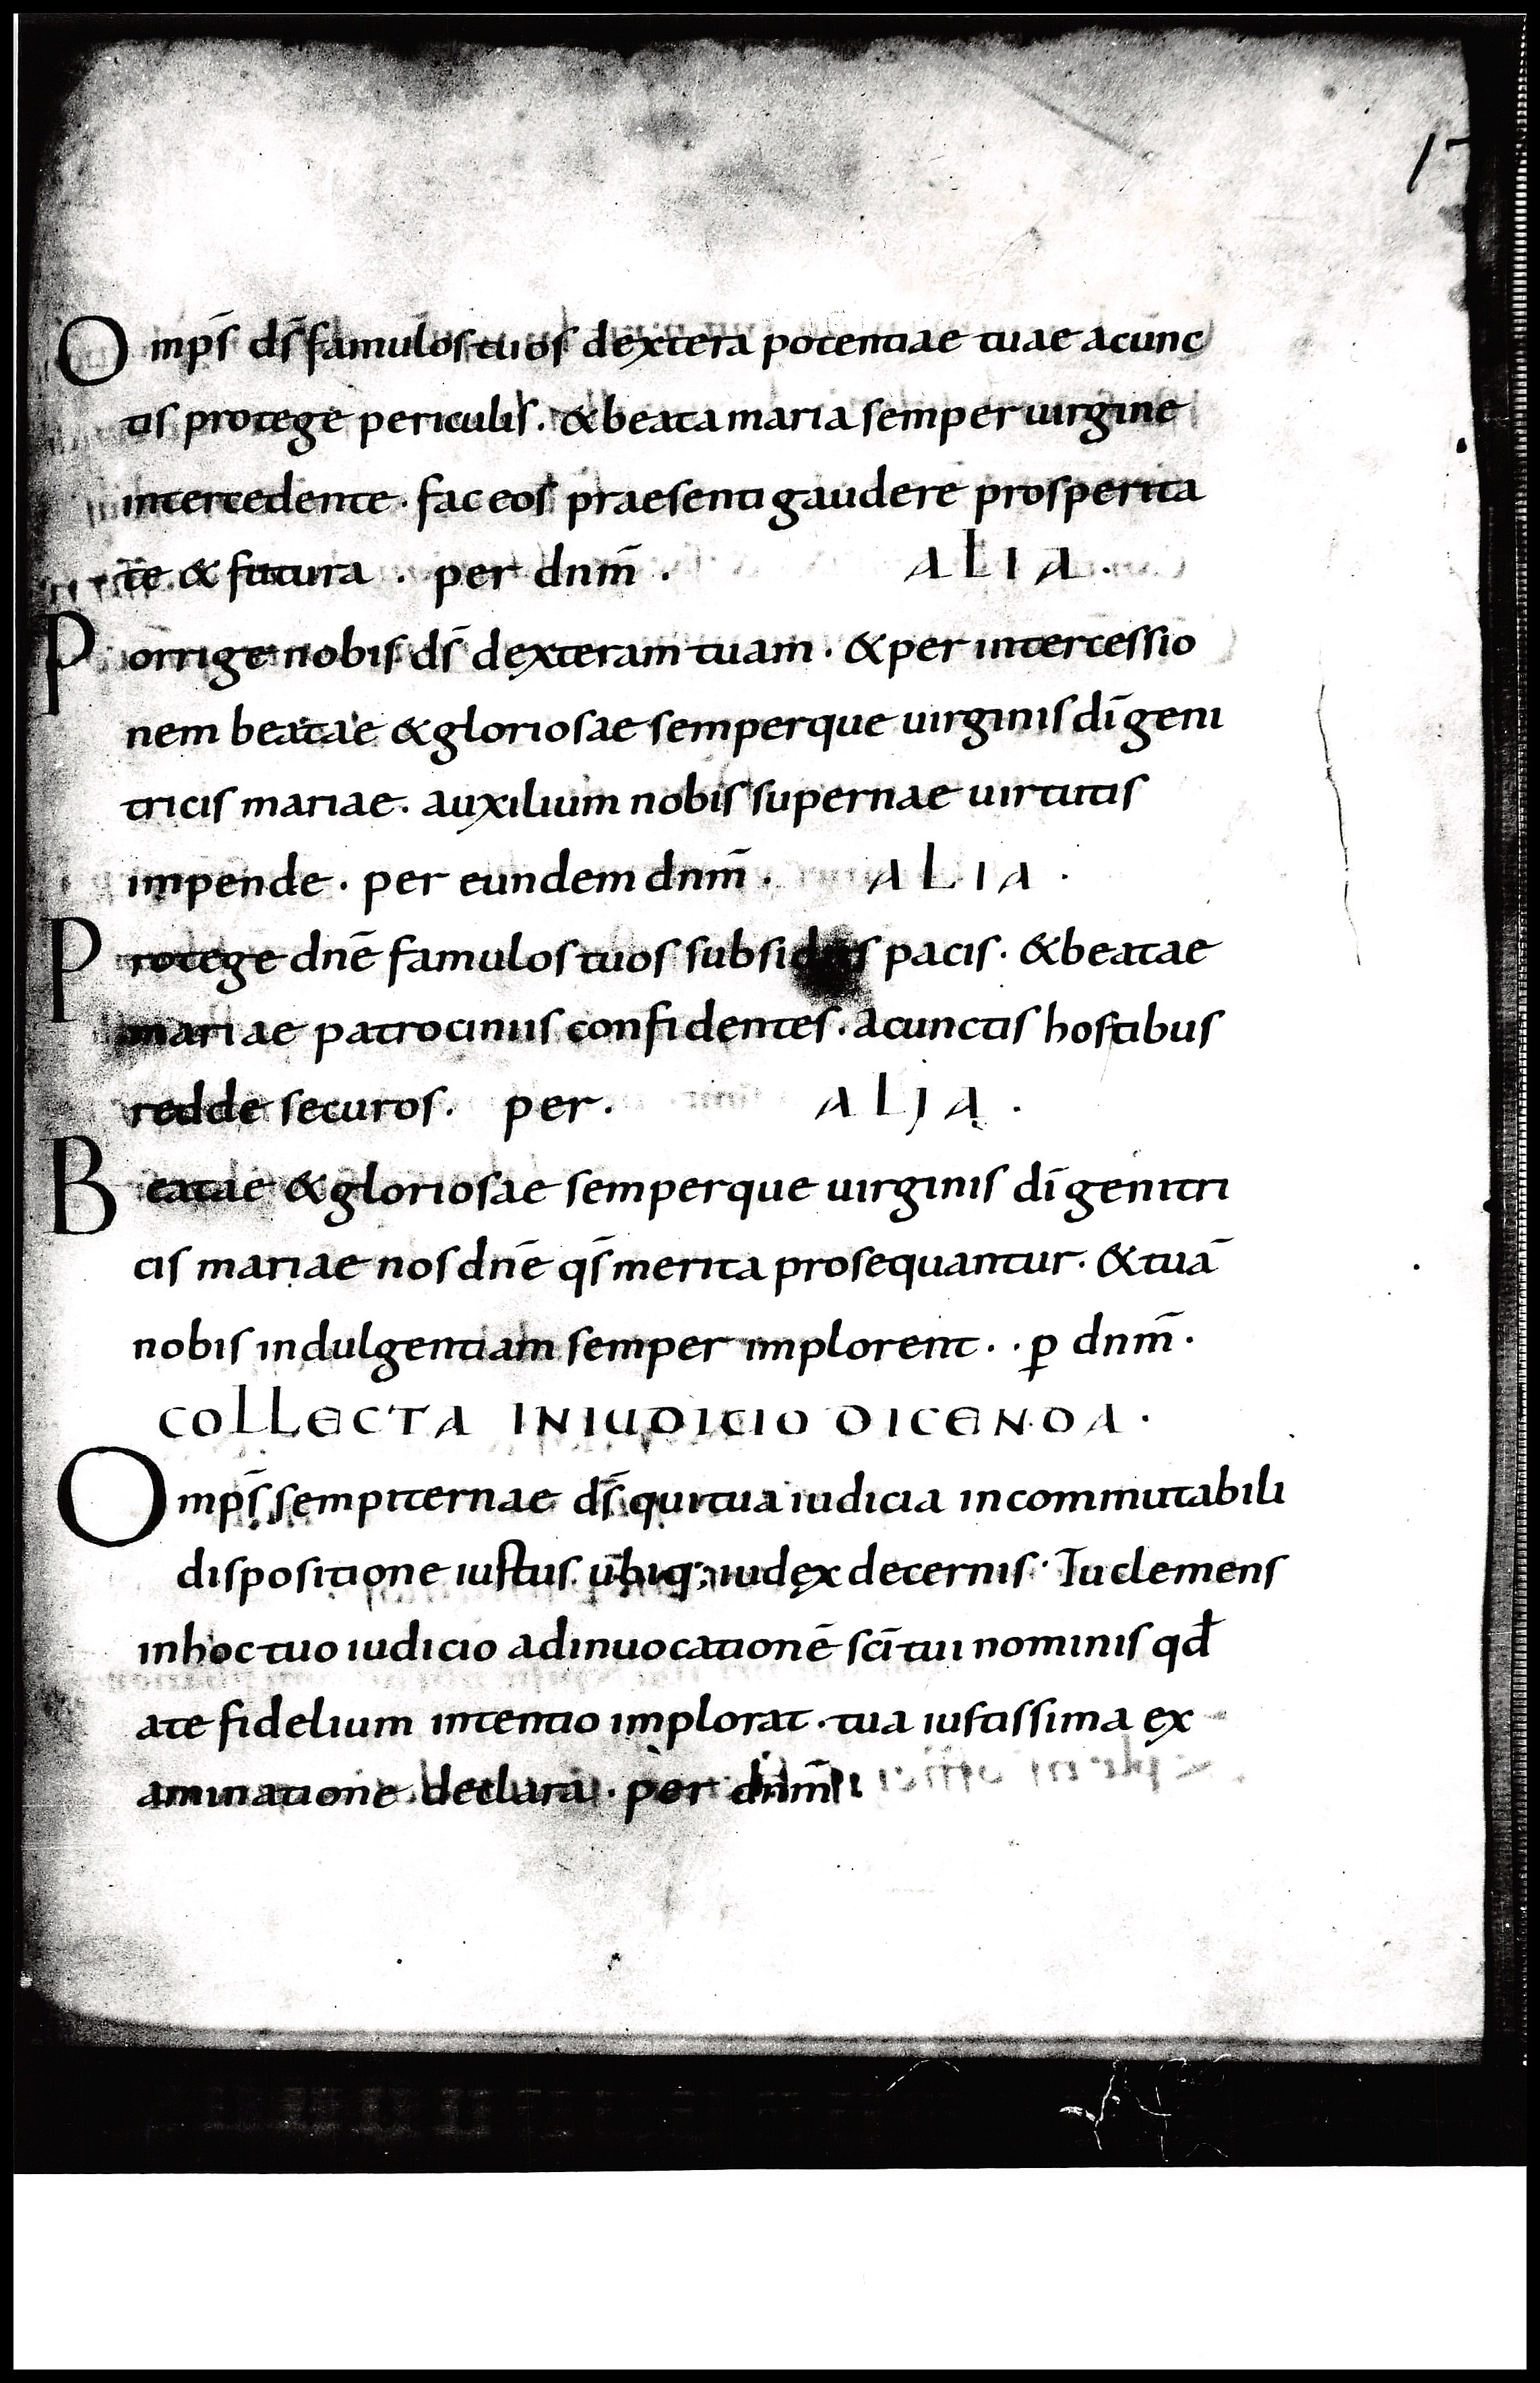 Omp̄s ds̄ famulos tuos dextera potentiae tuae acunc
tis protege periculis. & beata maria semper uirgine
intercedente. fac eos praesenti gaudere prosperita
te & futura . per dnm̄ . ALIA.
Porrige nobis ds̄ dexteram tuam. & per intercessio
nem beatae & gloriosae semperque uirginis dī geni
tricis mariae. auxilium nobis supernae uirtutis
impende. per eundem dnm̄. ALIA.
Protege dnē famulos tuos subsidiis pacis. & beatae
mariae patrociniis confidentes. acunctis hostibus
redde securos. per. ALIA.
Beatae & gloriosae semperque uirginis dī genitri
cis mariae nos dnē qs̄ merita prosequantur. & tuā
nobis indulgentiam semper implorent. . ꝑ dnm̄.
COLLECTA INIUDICIO DICENDA.
Omp̄s sempiternae ds̄ qui tua iudicia incommutabili
dispositione iustus ubiq; iudex decernis. Tu clemens
inhoc tuo iudicio adinuocationē sc̄i tui nominis qđ
ate fidelium intentio implorat. tua iustissima ex
aminatione declara. per dnm̄